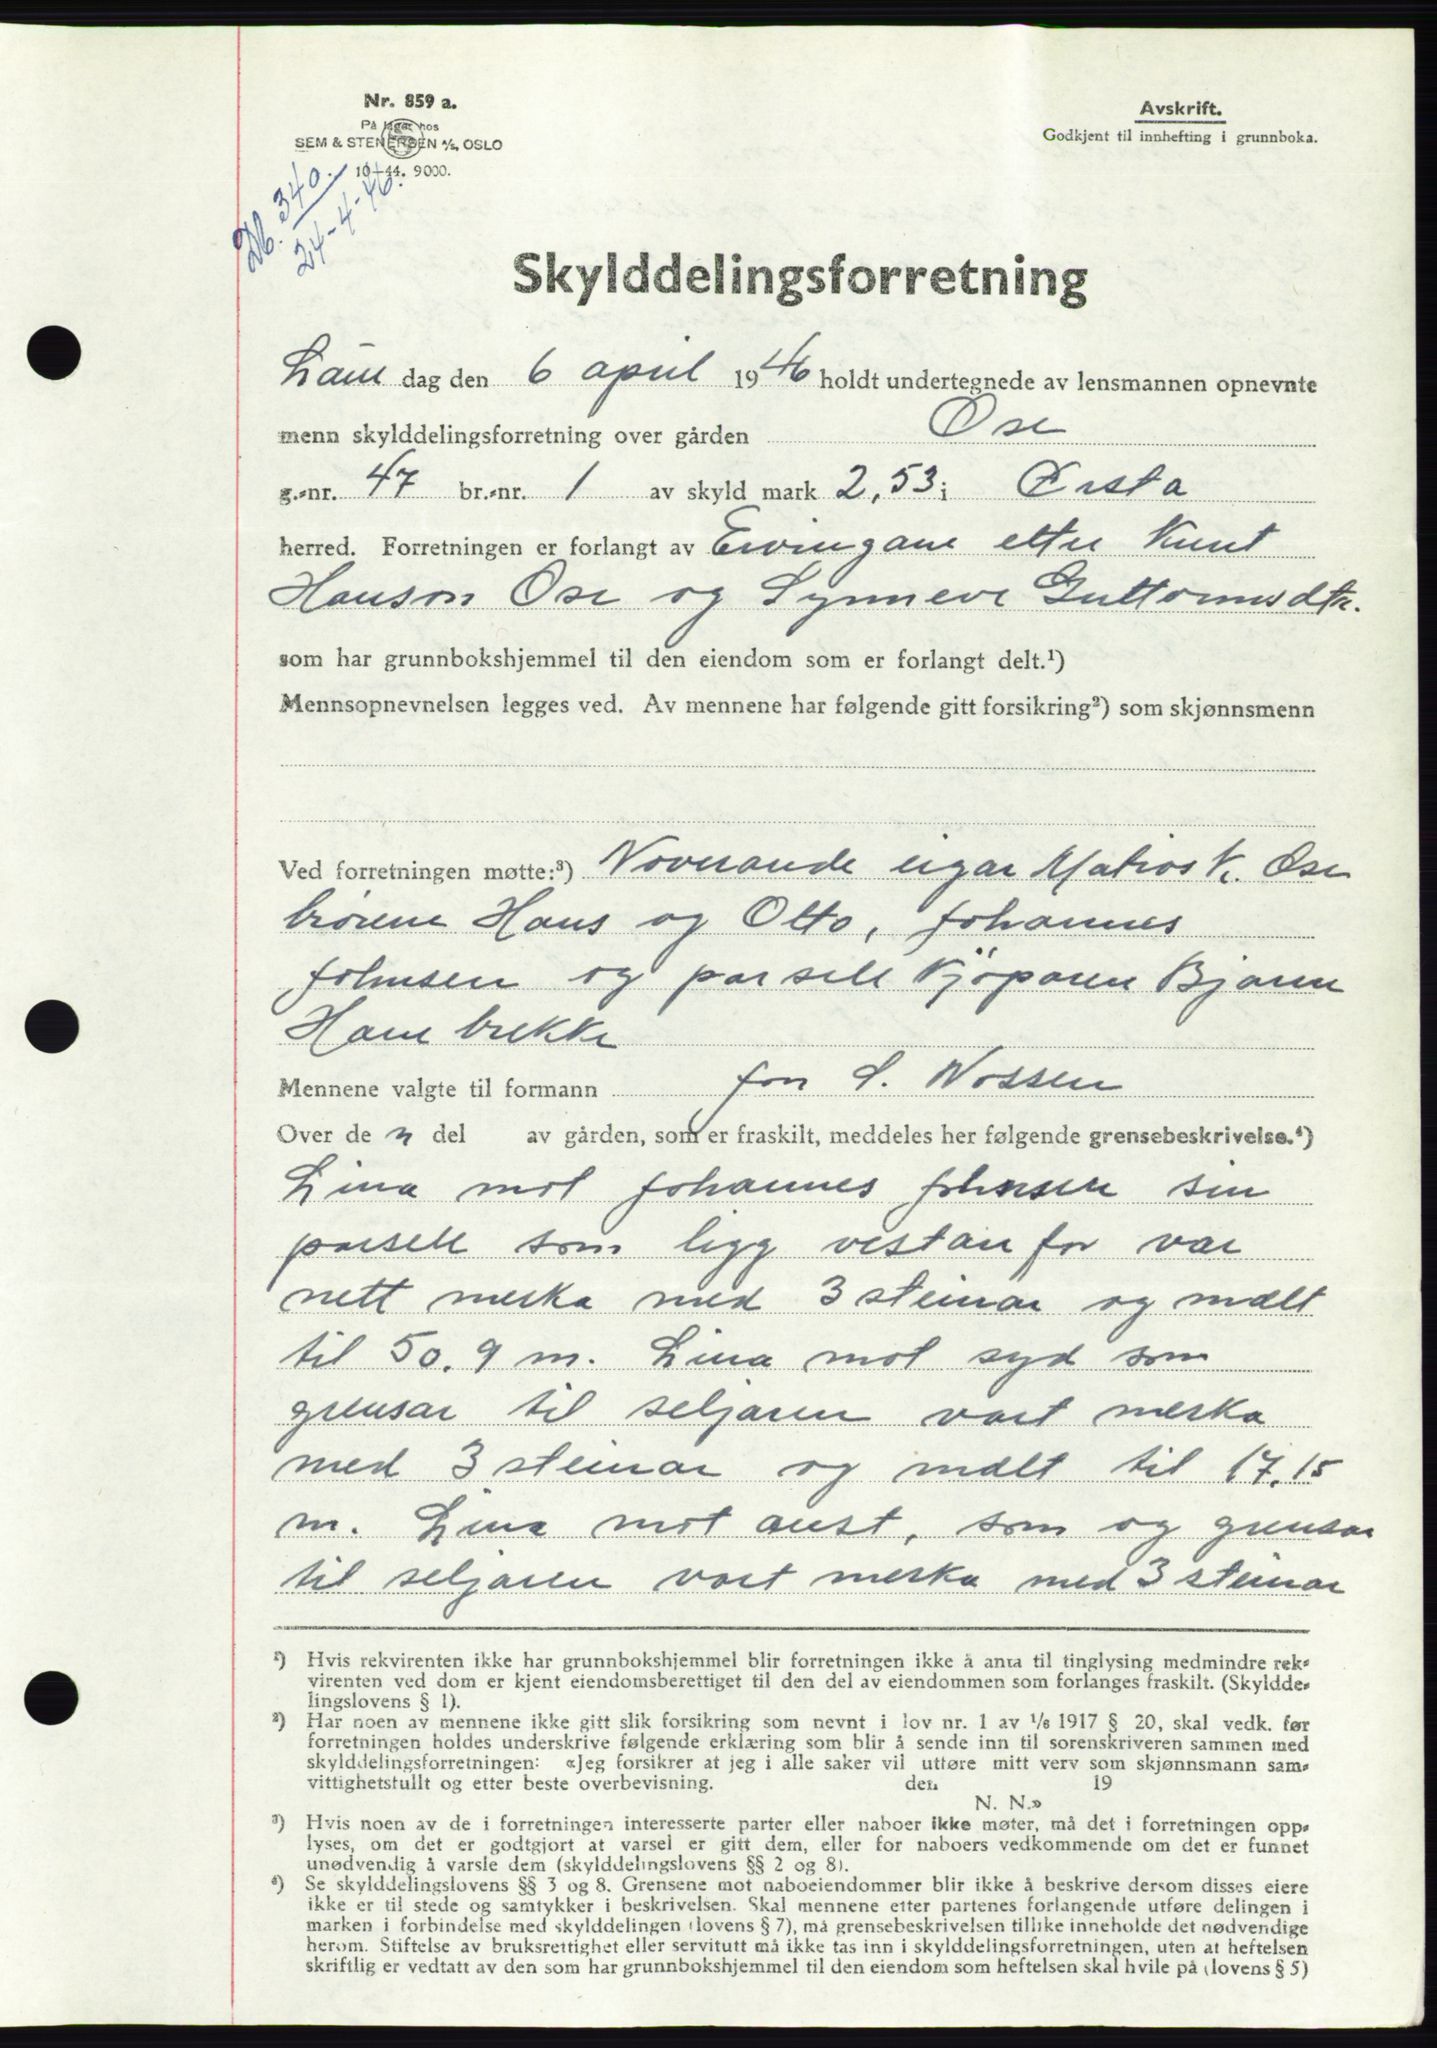 Nr. 859 a.
På lager hos
SEM & STENERSEN A/S, OSLO
10-44. 9000.
Avskrift.
Godkjent til innhefting i grunnboka.
Db. 340.
24-4-46.
Skylddelingsforretning
Lau dag den 6 april 1946 holdt undertegnede av lensmannen opnevnte
menn skylddelingsforretning over gården Ose
g.-nr. 47 br.-nr. 1 av skyld mark 2,53 i Ørsta
herred. Forretningen er forlangt av Ervingane etter Knut
Hanson Ose og Synneve Guttormsdtr.
som har grunnbokshjemmel til den eiendom som er forlangt delt.¹)
Mennsopnevnelsen legges ved. Av mennene har følgende gitt forsikring²) som skjønnsmenn
Ved forretningen møtte:³) Noverande eigar Matios K. Ose
brørene Hans og Otto, Johannes
Johnsen og parsell kjöparen Bjarne
Hamebrekke
Mennene valgte til formann Jon S. Nossen
Over de n del av gården, som er fraskilt, meddeles her følgende grensebeskrivelse.⁴)
Lina mot Johannes Johnsen sin
parsell som ligg vestan for var
nett merka med 3 steinar og mælt
til 50.9 m. Lina mot syd som
grensar til seljaren vart merka
med 3 steinar og mælt til 17.15
m. Lina mot aust, som og grensar
til seljaren vart merka med 3 steinar
¹) Hvis rekvirenten ikke har grunnbokshjemmel blir forretningen ikke å anta til tinglysing medmindre rek-
virenten ved dom er kjent eiendomsberettiget til den del av eiendommen som forlanges fraskilt. (Skyldde-
lingslovens § 1).
²) Har noen av mennene ikke gitt slik forsikring som nevnt i lov nr. 1 av 1/6 1917 § 20, skal vedk. før
forretningen holdes underskrive følgende erklæring som blir å sende inn til sorenskriveren sammen med
skylddelingsforretningen: «Jeg forsikrer at jeg i alle saker vil utføre mitt verv som skjønnsmann sam-
vittighetsfullt og etter beste overbevisning. den 19
N. N.»
³) Hvis noen av de i forretningen interesserte parter eller naboer ikke møter, må det i forretningen opp-
lyses, om det er godtgjort at varsel er gitt dem, eller for naboers vedkommende om det er funnet
unødvendig å varsle dem (skylddelingslovens §§ 2 og 8).
⁴) Se skylddelingslovens §§ 3 og 8. Grensene mot naboeiendommer blir ikke å beskrive dersom disses eiere
ikke er til stede og samtykker i beskrivelsen. Skal mennene etter partenes forlangende utføre delingen i
marken i forbindelse med skylddelingen (lovens § 7), må grensebeskrivelsen tillike inneholde det nødvendige
herom. Stiftelse av bruksrettighet eller servitutt må ikke tas inn i skylddelingsforretningen, uten at heftelsen
skriftlig er vedtatt av den som har grunnbokshjemmel til den eiendom som heftelsen skal hvile på (lovens § 5)